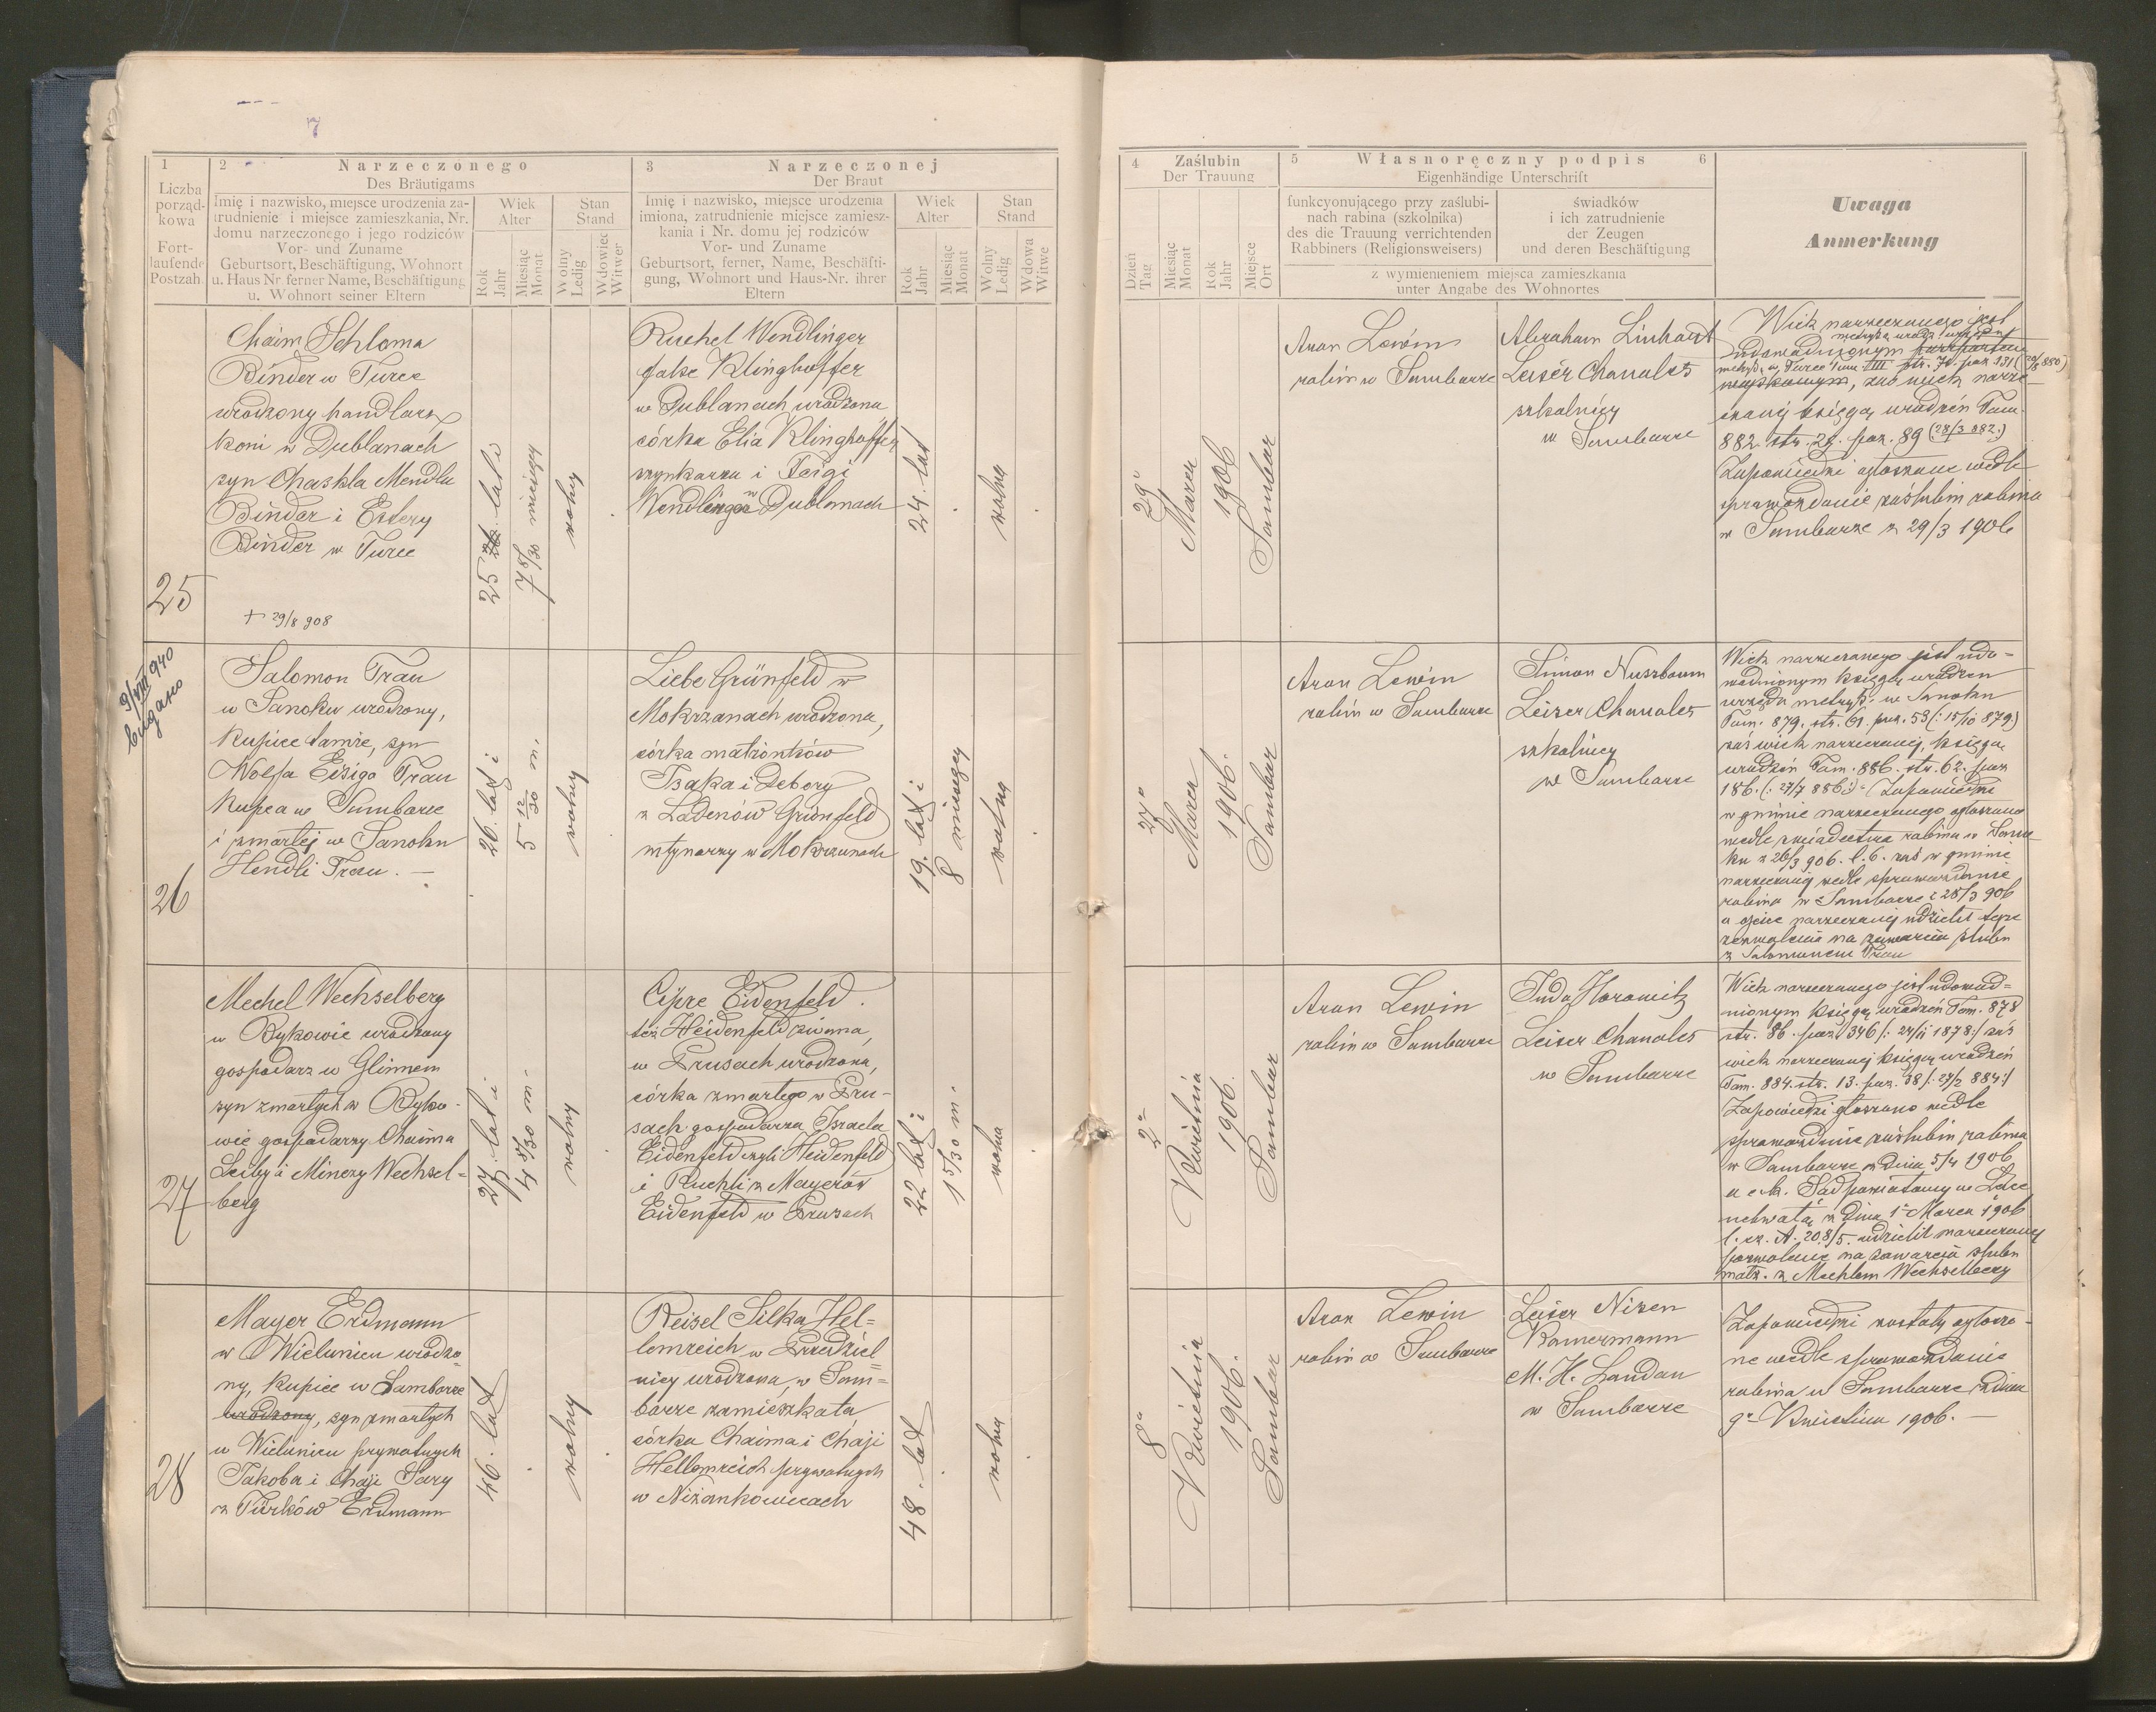 7
1
Liczba
porząd-
kowa
Fort-
laufende
Postzah
2 Narzeczonego
Des Bräutigams
Imię i nazwisko, miejsce urodzenia za-
trudnienie i miejsce zamieszkania, Nr.
domu narzeczonego i jego rodziców
Vor- und Zuname
Geburtsort, Beschäftigung, Wohnort
u. Haus Nr ferner Name, Beschäftigung
u. Wohnort seiner Eltern
Wiek
Alter
Rok
Jahr
Miesiąc
Monat
Stan
Stand
Wolny
Ledig
Wdowiec
Witwer
3 Narzeczonej
Der Braut
Imię i nazwisko, miejsce urodzenia
imiona, zatrudnienie miejsce zamiesz-
kania i Nr. domu jej rodziców
Vor- und Zuname
Geburtsort, ferner, Name, Beschäfti-
gung, Wohnort und Haus-Nr. ihrer
Eltern
Wiek
Alter
Rok
Jahr
Miesiąc
Monat
Stan
Stand
Wolny
Ledig
Wdowa
Witwe
4 Zaślubin
Der Trauung
Dzień
Tag
Miesiąc
Monat
Rok
Jahr
Miejsce
Ort
5 Własnoręczny podpis 6
Eigenhändige Unterschrift
funkcyonującego przy zaślubi-
nach rabina (szkolnika)
des die Trauung verrichtenden
Rabbiners (Religionsweisers)
świadków
i ich zatrudnienie
der Zeugen
und deren Beschäftigung
z wymienieniem miejsca zamieszkania
unter Angabe des Wohnortes
Uwaga
Anmerkung
25
Chaim Schloma
Binder w Turce
urodzony handlarz
koni w Dublanach
syn Chaskla Mendla
Binder i Estery
Binder w Turce
+ 29/8 908
25 26 lat i
7 8/30 miesięcy
wolny
Ruchel Wendlinger
false Klinghoffer
w Dublanach urodzona
córka Elia Klinghoffer
szynkarza i Feigi
Wendlinger w Dublanach
24. lat
wolna
29º
Marca
1906
Sambor
Aron Lewin
rabin w Samborze
Abraham Linhardt
Leiser Chanales
szkolnicy
w Samborze
Wiek narzeczonego jest
udowodnionym
czonej księgą urodzeń Tom.
882. str. 24. poz. 89 (28/3 882.)
Zapowiedzi ogłoszone wedle
sprawozdanie zaślubin rabina
w Samborze z 29/3 1906
9/VIII 940
26
Salomon Trau
w Sanoku urodzony,
kupiec tamże, syn
Wolfa Eisiga Trau
kupca w Samborze
i zmarłej w Sanoku
Hendli Trau. —
26. lat i
5 12/30 m.
wolny
Liebe Grünfeld w
Mokrzanach urodzona,
córka małżonków
Isaka i Debory
z Ladenów Grünfeld
młynarzy w Mokrzanach
19. lat i
8 miesięcy
wolna
27º
Marca
1906.
Sambor
Aron Lewin
rabin w Samborze
Simon Nussbaum
Leiser Chanales
szkolnicy
w Samborze
Wiek narzeczonego jest udo=
wodnionym księgą urodzeń
urzędu metryk. w Sanoku
Tom. 879. str. 61. poz. 53 (: 15/10 879:)
zaś wiek narzeczonej, księgą
urodzeń Tom. 886. str. 62. poz
186. (: 27/7 886:) – Zapowiedzi
w gminie narzeczonego ogłoszono
wedle świadectwa rabina w Sano
ku z 26/3 906. l. 6. zaś w gminie
narzeczonej wedle sprawozdanie
rabina w Samborze z 28/3 906
a ojciec narzeczonej udzielił tegoż
zezwolenia na zawarcia ślubu
z Salomonem Trau
27
Mechel Wechselberg
w Bykowie urodzony
gospodarz w Glinnem
syn zmarłych w Byko-
wie gospodarzy Chaima
Leiby i Minczy Wechsel=
berg
27. lat i
4 8/30 m.
wolny
Cipre Eidenfeld.
też Heidenfeld zwana,
w Prusach urodzona,
córka zmarłego w Pru-
sach gospodarza Israela
Eidenfeld czyli Heidenfeld
i Ruchli z Mayerów
Eidenfeld w Prusach
22 lat i
1 5/30 m.
wolna
2º
Kwietnia
1906.
Sambor
Aron Lewin
rabin w Samborze
Juda Horowitz
Leiser Chanales
w Samborze
Wiek narzeczonego jest udowod=
nionym księgą urodzeń Tom. 878
str. 86. poz. 346 (: 24/11 1878:) zaś
wiek narzeczonej księgą urodzeń
Tom. 884. str. 13. poz. 38 (: 27/2 884:)
Zapowiedzi głoszono wedle
sprawozdanie zaślubin rabina
w Samborze z dnia 5/4 1906
a c. k. Sąd powiatowy w Łące
uchwałą z dnia 1º Marca 1906
l. cz. A. 208/5. udzielił narzeczonej
pozwolenie na zawarcia ślubu
małż. z Mechlem Wechselberg
28
Mayer Erdmann
w Wielunicu urodzo=
ny, kupiec w Samborze
urodzony, syn zmarłych
w Wielunicu prywatnych
Jakoba i Chaji Sary
z Türków Erdmann
46. lat
wolny
Reisel Silka Hel=
lemreich w Przedziel=
nicy urodzona, w Sam=
borze zamieszkała
córka Chaima i Chaji
Hellemreich prywatnych
w Niżankowicach
48. lat
wolna
8º
Kwietnia
1906.
Sambor
Aron Lewin
rabin w Samborze
Leiser Nisen
Kamermann
M. H. Landau
w Samborze
Zapowiedzi zostały ogłoszo-
ne wedle sprawozdanie
rabina w Samborze z dnia
9º Kwietnia 1906. —